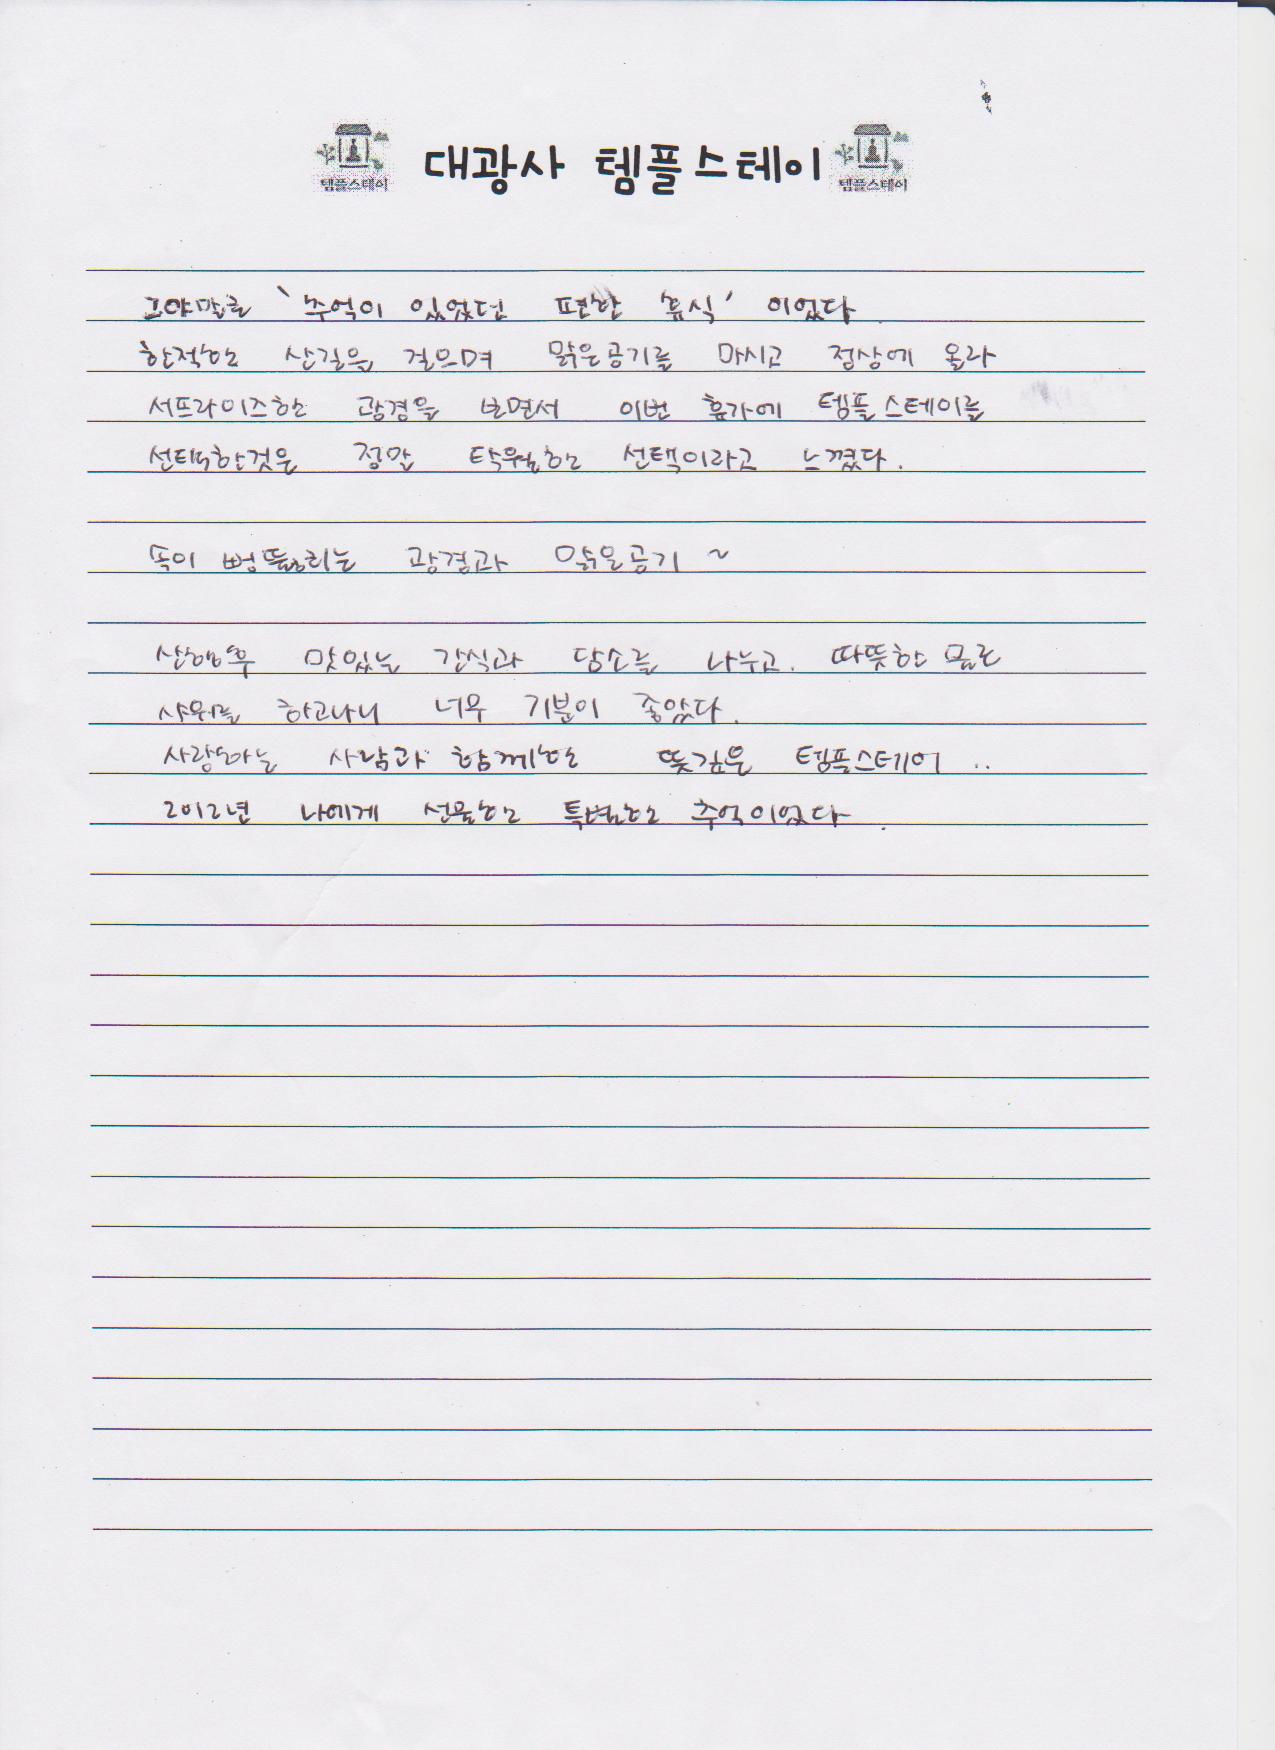 대광사 템플스테이
템플스테이
템플스테이
그야말로 '추억이 있었던 편한 휴식' 이었다.
한적한 산길을 걸으며 맑은공기를 마시고 정상에 올라
서프라이즈한 광경을 보면서 이번 휴가에 템플스테이를
선택한것은 정말 탁월한 선택이라고 느꼈다.
속이 뻥뚫리는 광경과 맑은공기 ~
산행후 맛있는 간식과 담소를 나누고. 따뜻한 물로
샤워를 하고나니 너무 기분이 좋았다.
사랑하는 사람과 함께한 뜻깊은 템플스테이 ..
2012년 나에게 선물한 특별한 추억이었다.